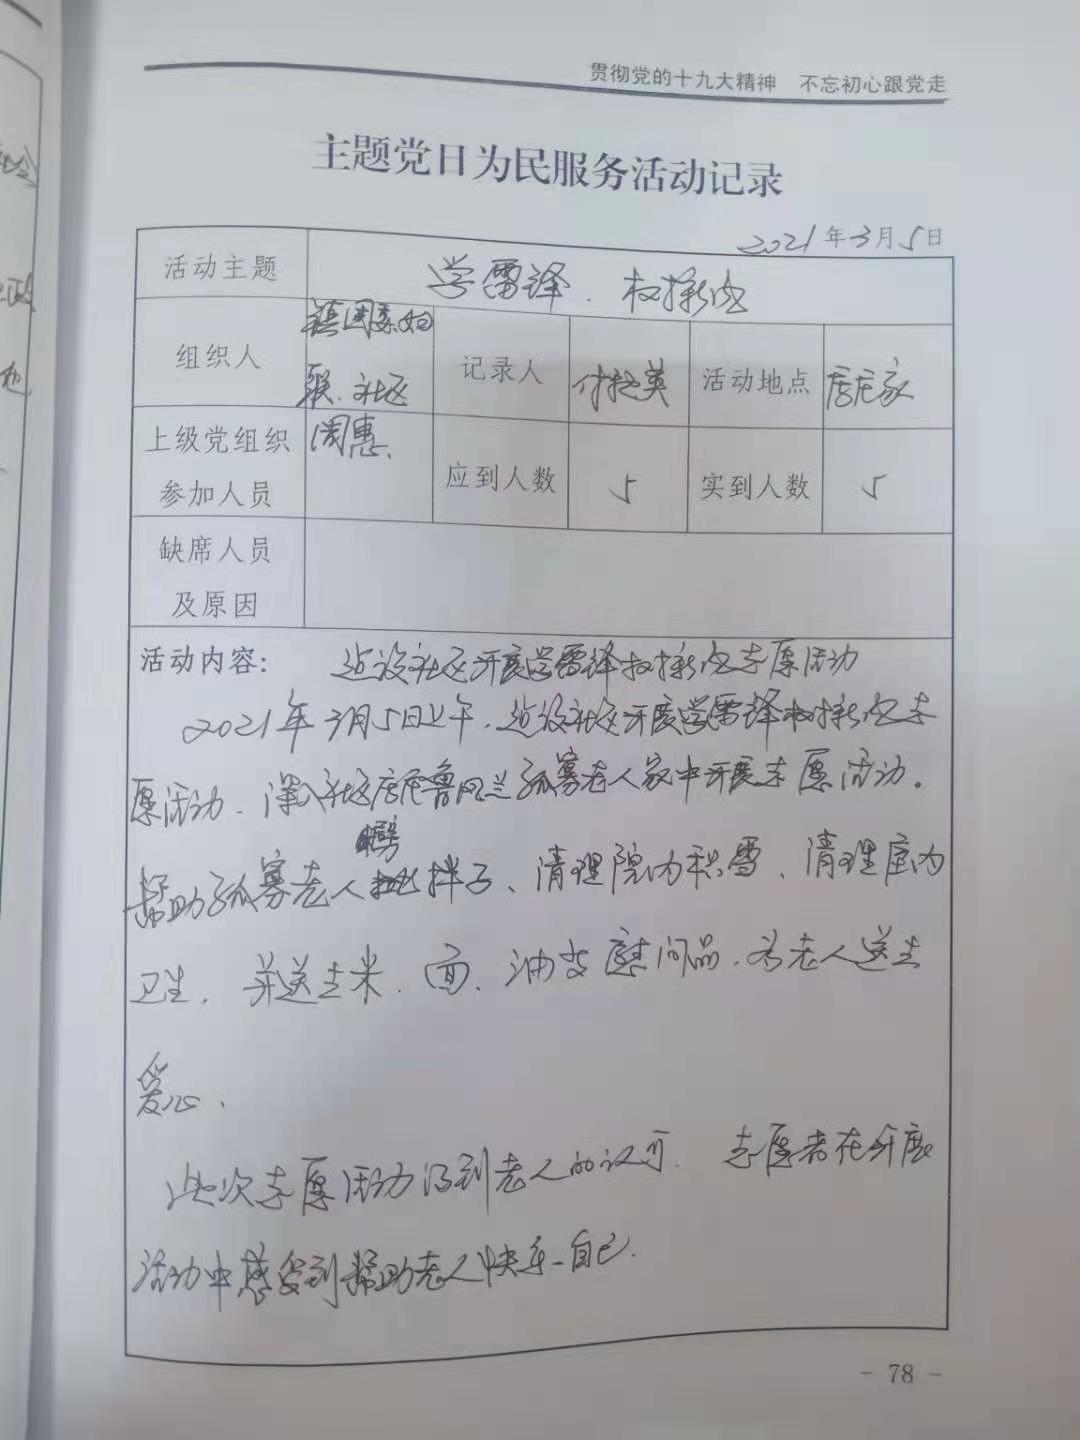 贯彻党的十九大精神 不忘初心跟党走
主题党日为民服务活动记录
2021年3月5日
活动主题 学雷锋、树新风
组织人 镇团委妇联、社区 记录人 付艳英 活动地点 居民家
上级党组织参加人员 周惠 应到人数 5 实到人数 5
缺席人员及原因
活动内容: 建设社区开展学雷锋树新风志愿活动
2021年3月5日上午,建设社区开展学雷锋树新风志
愿活动,深入社区居民鲁凤兰孤寡老人家中开展志愿活动。
帮助孤寡老人劈拌子、清理院内积雪、清理屋内
卫生,并送去米、面、油等慰问品,为老人送去
爱心.
此次志愿活动得到老人的认可. 志愿者在开展
活动中感受到帮助老人快乐自己.
- 78 -